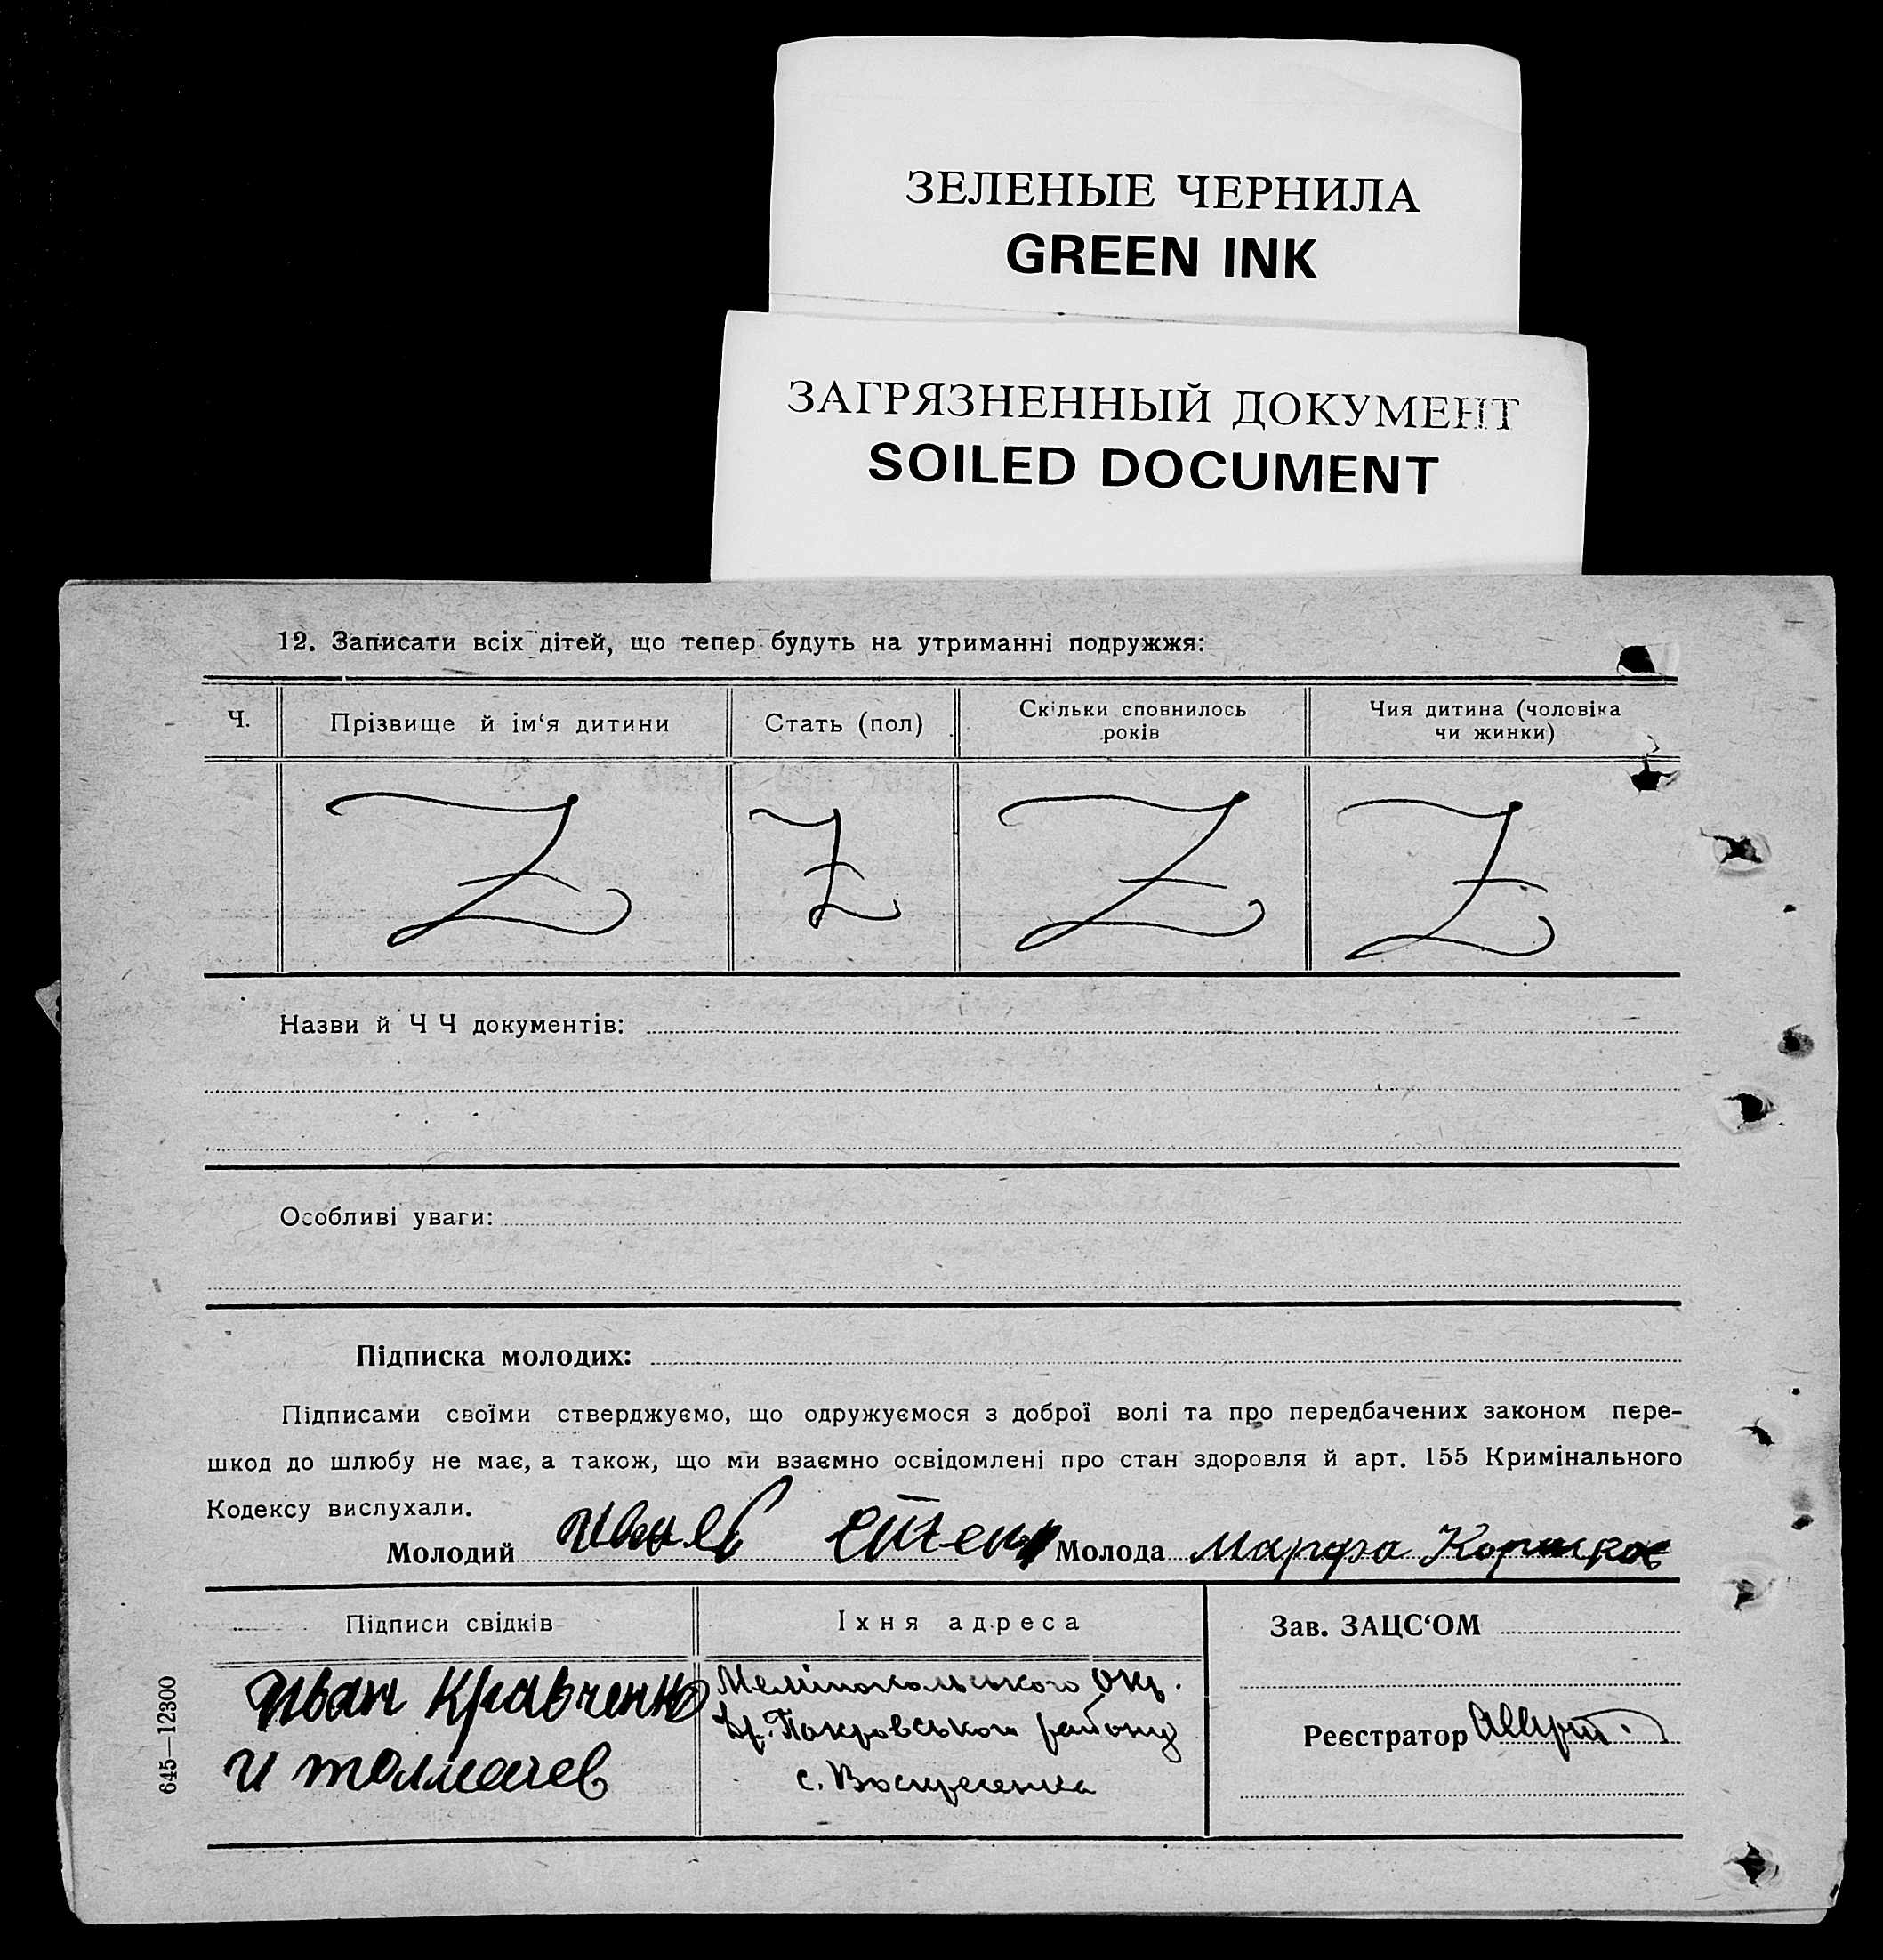 ЗЕЛЕНЫЕ ЧЕРНИЛА
GREEN INK
ЗАГРЯЗНЕННЫЙ ДОКУМЕНТ
SOILED DOCUMENT
12. Записати всіх дітей, що тепер будуть на утриманні подружжя:
Ч.
Прізвище й ім‘я дитини
Стать (пол)
Скільки сповнилось
років
Чия дитина (чоловіка
чи жинки)
Z Z Z Z
Назви й Ч Ч документів:
Особливі уваги:
Підписка молодих:
Підписами своїми стверджуємо, що одружуємося з доброї волі та про передбачених законом пере-
шкод до шлюбу не має, а також, що ми взаємно освідомлені про стан здоровля й арт. 155 Кримінального
Кодексу вислухали.
Молодий Молода Марфа
Підписи свідків
Іхня адреса
Зав. ЗАЦС‘ОМ
Иван Кравченко
И толмачев
Мелітопольського Окр.
Покровського району
с. Воскресенка
Реєстратор
645—12300